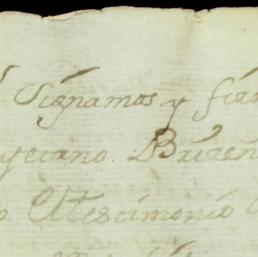 Signamos y fir
yetano Briseñ
o Utestimonio